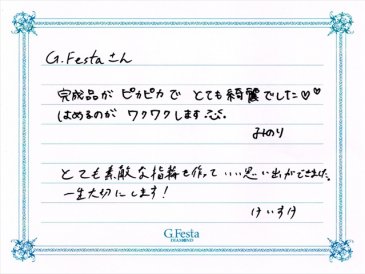 G.Festaさん
完成品が ピカピカで とても綺麗でした♡♡
はめるのが ワクワクします
みのり
とても素敵な指輪を作って いい思い出ができました。
一生大切にします!
けいすけ
G.Festa
DIAMOND